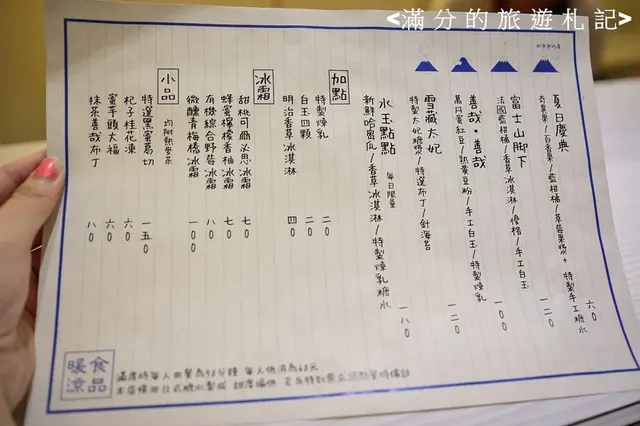 <滿分的旅遊札記>
夏日慶典
奇異果/百香果/藍柑橘/草莓果漿+特製手工糖水
六〇
富士山腳下
法國藍柑橘/香草冰淇淋/優格/手工白玉
一二〇
善哉・善哉
萬丹蜜紅豆/熟黃豆粉/手工白玉/特製煉乳
一〇〇
雪藏太妃
特製太妃糖漿/特選布丁/針海苔
一二〇
水玉點點 每日限量
新鮮哈密瓜/香草冰淇淋/特製煉乳糖水
一八〇
加點
特製煉乳 二〇
白玉四顆 二〇
明治香草冰淇淋 四〇
冰霜
甜桃可爾必思冰霜 七〇
蜂蜜檸檬香柚冰霜 七〇
有機綜合野莓冰霜 八〇
微醺青梅梅酒冰霜 一〇〇
小品
均附熱麥茶
特選黑蜜葛切 一五〇
杞子桂花凍 六〇
蜜芋頭大福 六〇
抹茶善哉布丁 八〇
食品
暖涼
滿席時每人用餐為90分鐘 每人低消為60元